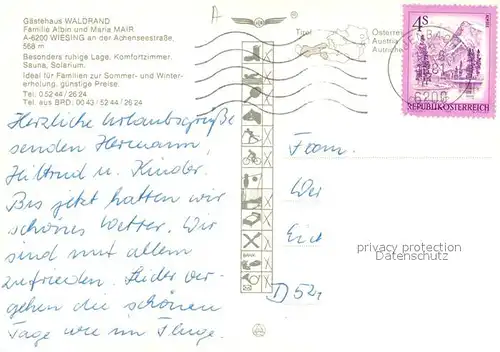 Gästehaus WALDRAND
Familie Albin und Maria MAIR
A-6200 WIESING an der Achenseestraße,
568 m
Besonders ruhige Lage, Komfortzimmer,
Sauna, Solarium.
Ideal für Familien zur Sommer- und Winter-
erholung, günstige Preise.
Tel. 0 52 44 / 26 24
Tel. aus BRD. 00 43 / 52 44 / 26 24
A
Tirol
Österreich
Austria
Autriche
4 S
REPUBLIK ÖSTERREICH
6200
Herzliche Urlaubsgrüße
senden Hermann,
Hiltrud u. Kinder.
Bis jetzt hatten wir
schönes Wetter. Wir
sind mit allem
zufrieden. Leider ver-
gehen die schönen
Tage wie im Fluge.
BANK
Fam.
D 52
privacy protection
AnsichtskartenCenter